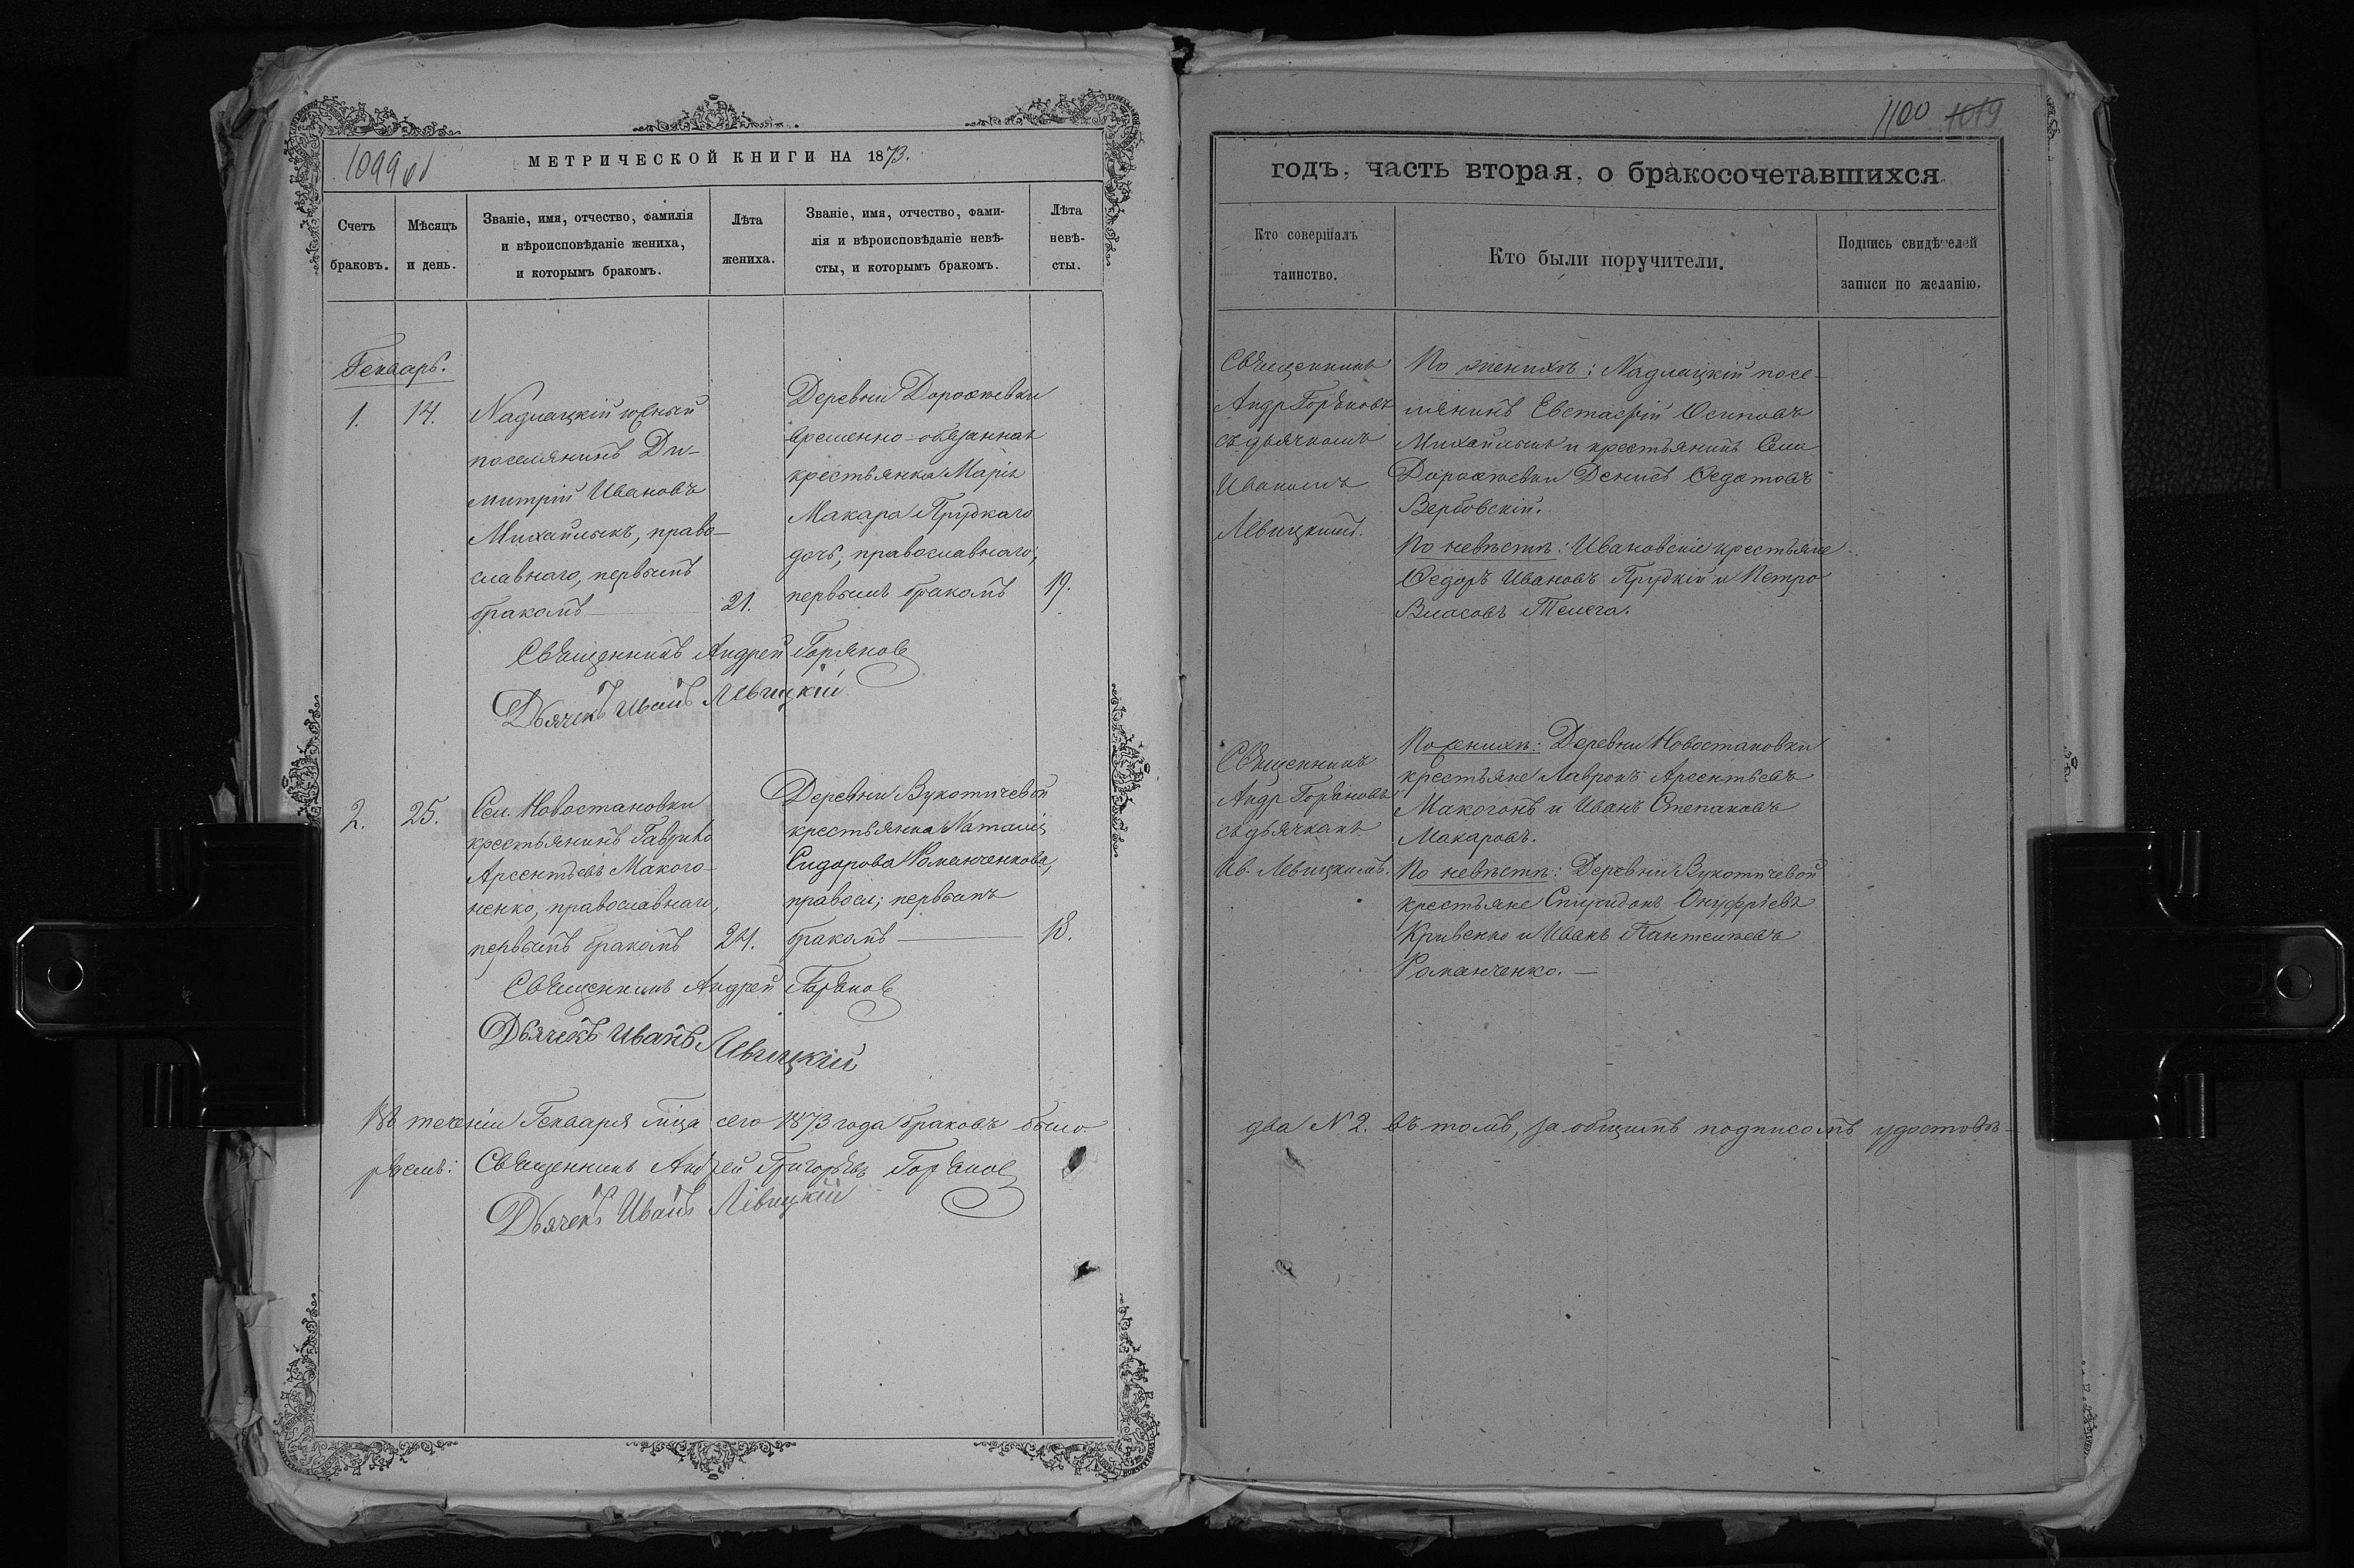 1099 об
МЕТРИЧЕСКОЙ КНИГИ НА 1873.
Счетъ браковъ.
Мѣсяцъ и день.
Званіе, имя, отчество, фамилія
и вѣроисповѣданіе жениха,
и которымъ бракомъ.
Лѣта жениха.
Званіе, имя, отчество, фами-
лія и вѣроисповѣданіе невѣ-
сты, и которымъ бракомъ.
Лѣта
невѣ-
сты.
Генварь.
1.
14.
Надлацкій южный
поселянинъ Ди-
митрій Ивановъ
Михайлыкъ, право-
славнаго, первымъ
бракомъ
21.
Деревни Дорожевки
временно-обязанная
крестьянка Марія
Макара Прудкаго
дочь, православнаго,
первымъ бракомъ
19.
Священникъ Андрей Горяновъ
Дьячекъ Иванъ Лѣвицкій
2.
25.
Сел. Новостановки
крестьянинъ Гаврило
Арсентьевъ Макого-
ненко, православнаго,
первымъ бракомъ
24.
Деревни Вукотичевой
крестьянка Наталія
Сидорова Романченкова,
правосл; первымъ
бракомъ
18.
Священникъ Андрей Горяновъ
Дьячекъ Иванъ Лѣвицкій
Въ теченіи Генваря мца сего 1873 года браковъ было
ряемъ: Священникъ Андрей Григорьевъ Горяновъ
Дьячекъ Иванъ Лѣвицкій
1100 1019
годъ, часть вторая, о бракосочетавшихся
Кто совершалъ
таинство.
Кто были поручители.
Подпись свидѣтелей
записи по желанію.
Священникъ
Андр Горяновъ
съ дьячкомъ
Иваномъ
Лѣвицкимъ.
По женихѣ: Надлацкій посе-
лянинъ Евстафій Осиповъ
Михайлыкъ и крестьянинъ Села
Дорожевки Денисъ Федотовъ
Вербовскій.
По невѣстѣ: Ивановскіе крестьяне
Федоръ Ивановъ Прудкій и Петро
Власовъ Телега.
Священникъ
Андр Горяновъ
съ дьячкомъ
Ив. Лѣвицкимъ.
По женихѣ: Деревни Новостановки
крестьяне Лавронъ Арсентьевъ
Макогонъ и Иванъ Степановъ
Макаровъ.
По невѣстѣ: Деревни Вукотичевой
крестьяне Спиридонъ Онуфріевъ
Кривенко и Иванъ Пантелѣевъ
Романченко.
два N 2. въ томъ, за общимъ подписомъ удостовѣ-